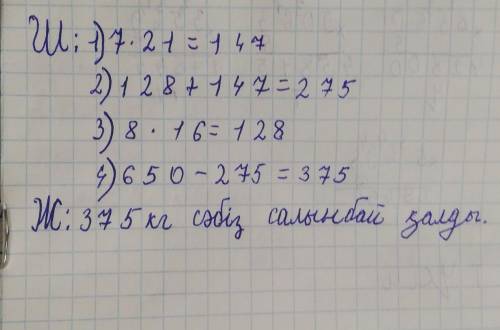 Ш: 1) 7 · 21 = 147
2) 128 + 147 = 275
3) 8 · 16 = 128
4) 650 - 275 = 375
Ж: 375 кг сәбіз салынбай қалды.